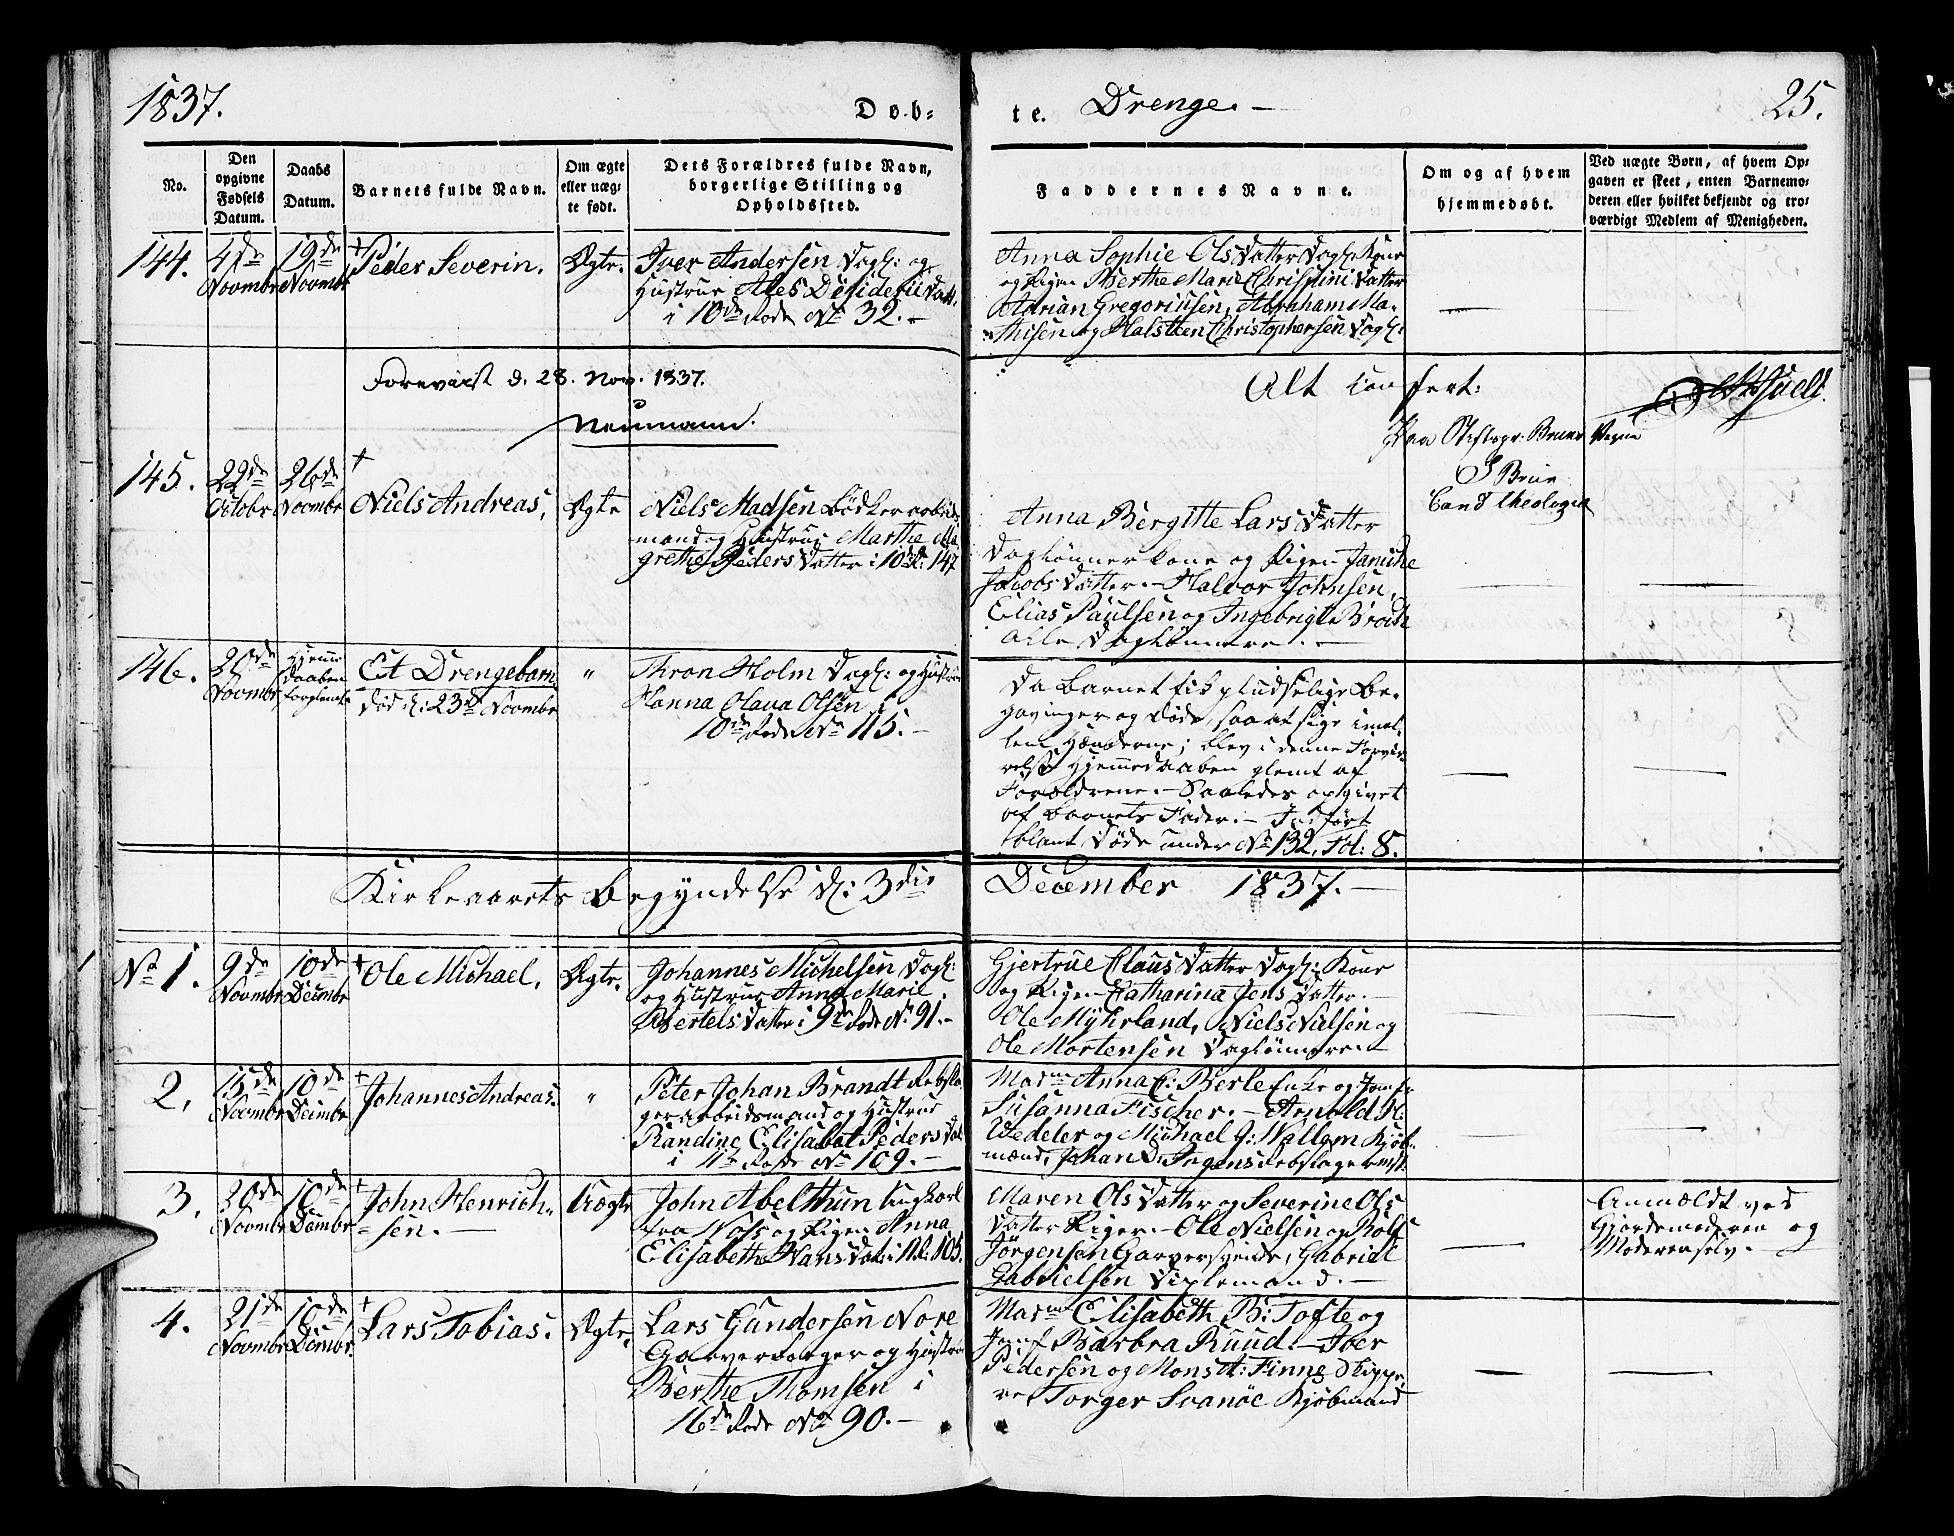 1837.
Døb-
te. Drenge. -
25.
No.
Den opgivne Fødsels Datum.
Daabs Datum.
Barnets fulde Navn.
Om ægte eller uæg-te født.
Dets Forældres fulde Navn, borgerlige Stilling og Opholdssted.
Faddernes Navne.
Om og af hvem hjemmedøbt.
Ved uægte Børn, af hvem Op-gaven er skeet, enten Barnemo-deren eller hvilket bekjendt og tro-værdigt Medlem af Menigheden.
144.
4de Novmbr
19de Novmbr
+ Peder Severin.
Ægte.
Iver Andersen Dagl: og
Hustrue Ales Desiderii Datt:
i 10de Rode No 32. -
Anna Sophie Ols Datter Dagl: Kone
og Pigen Berthe Marie Christine Datter
Adrian Gregoriusen, Abraham Ma-
thisen og Halsteen Christophersen Dagl:
Forevist d. 28. Nov. 1837.
Neumann.
Alt confert:
Paa Stiftspr: Bruns Vegne
S Brun
Cand theologia
145.
22de Octobr
26de Novmbr
+
Niels Andreas,
Ægte
Niels Madsen Bødker arbeids-
mand og Hustrue Marthe Ma
grethe Peders Datter i 10 R: 147
Anna Bergitte Lars Datter
Daglønner Kone og Pigen Janiche
Jacobs Datter. - Halvor Johnsen,
Elias Paulsen og Ingebrigt Broch
alle Daglønnere. -
146.
20de Novmbr
Hjemme
daaben
forglemt
Et Drengebarn
død d: 23de Novmbr
"
Thron Holm Dagl: og Hustrue
Hanna Olava Olsen i
10de Rode No 115. -
Da Barnet fik pludselige Be-
gavinger og døde, saa at sige imel-
lem Hænderne; blev i denne Forvir-
relse Hjemmedaaben glemt af
Forældrene. - Saaledes opgivet
af Barnets Fader. - Indført
blant Døde under No 132, Fol: 8.
Kirkeaarets Begyndelse d: 3die
December 1837. -
No 1.
9de Novmbr
10de Decmbr
+ Ole Michael,
Ægte.
Johannes Michelsen Dagl:
og Hustrue Anna Marie
Bertels Datter i 9de Rode No 91. -
Gjertrue Claus Datter Dagl: Kone
og Pigen Catharina Jens Datter. -
Ole Myhrland, Niels Nielsen og
Ole Mortensen Daglønnere. -
2,
15de Novmbr
10de Decmbr
+ Johannes Andreas.
"
Peter Johan Brandt Rebsla
gerarbeidsmand og Hustrue
Randine Elisabet Peders Dat
i 11te Rode No 109. -
Madme Anna C: Berle Enke og Jomfr
Susanna Fischer. - Arnold H:
Wedeler og Michael J: Wallem Kjøb-
mænd, Johan D. Ingens Rebslagermst.
3.
20de Novmbr
10de Decmbr
+ John Henrich-
-sen. -
Uægte
John Abelthun Ungkarl
fra Woss og Pigen Anna
Elisabeth Hans Dat: i 11 R: 105.
Maren Ols Datter og Severine Ols
Datter Piger. - Ole Nielsen og Rolf
Jörgensen Garversvende, Gabriel
Gabrielsen Viplemand. -
Anmældt ved
Gjordemoderen og
Moderen selv. -
4.
21de Novmbr
10de Decmbr.
+ Lars Tobias.
Ægte.
Lars Gundersen Nore
Garverborger og Hustrue
Berthe Thomsen i
16de Rode No 90. -
Madme Elisabeth B: Tofte og
Jomf Barbra Ruud. - Iver
Pedersen og Mons A: Finne Skippe-
re, Torger Svanöe Kjøbmand